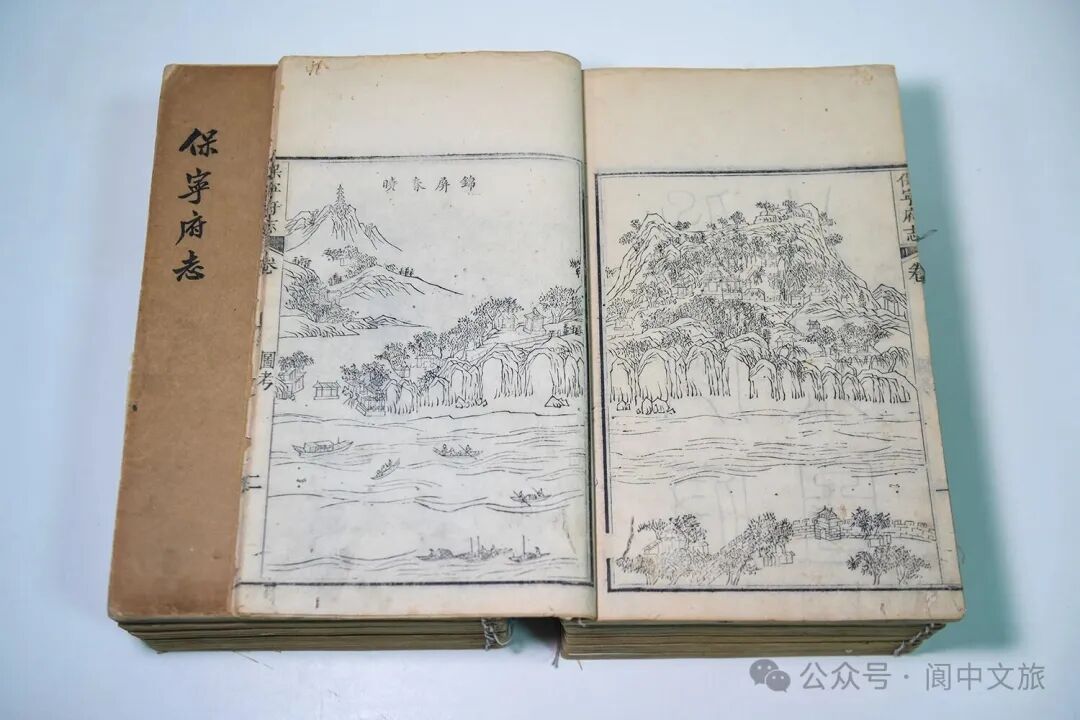 保寧府志
保寧府志
卷
圖考
二
錦屏春
保寧府志
卷
一
公众号·阆中文旅